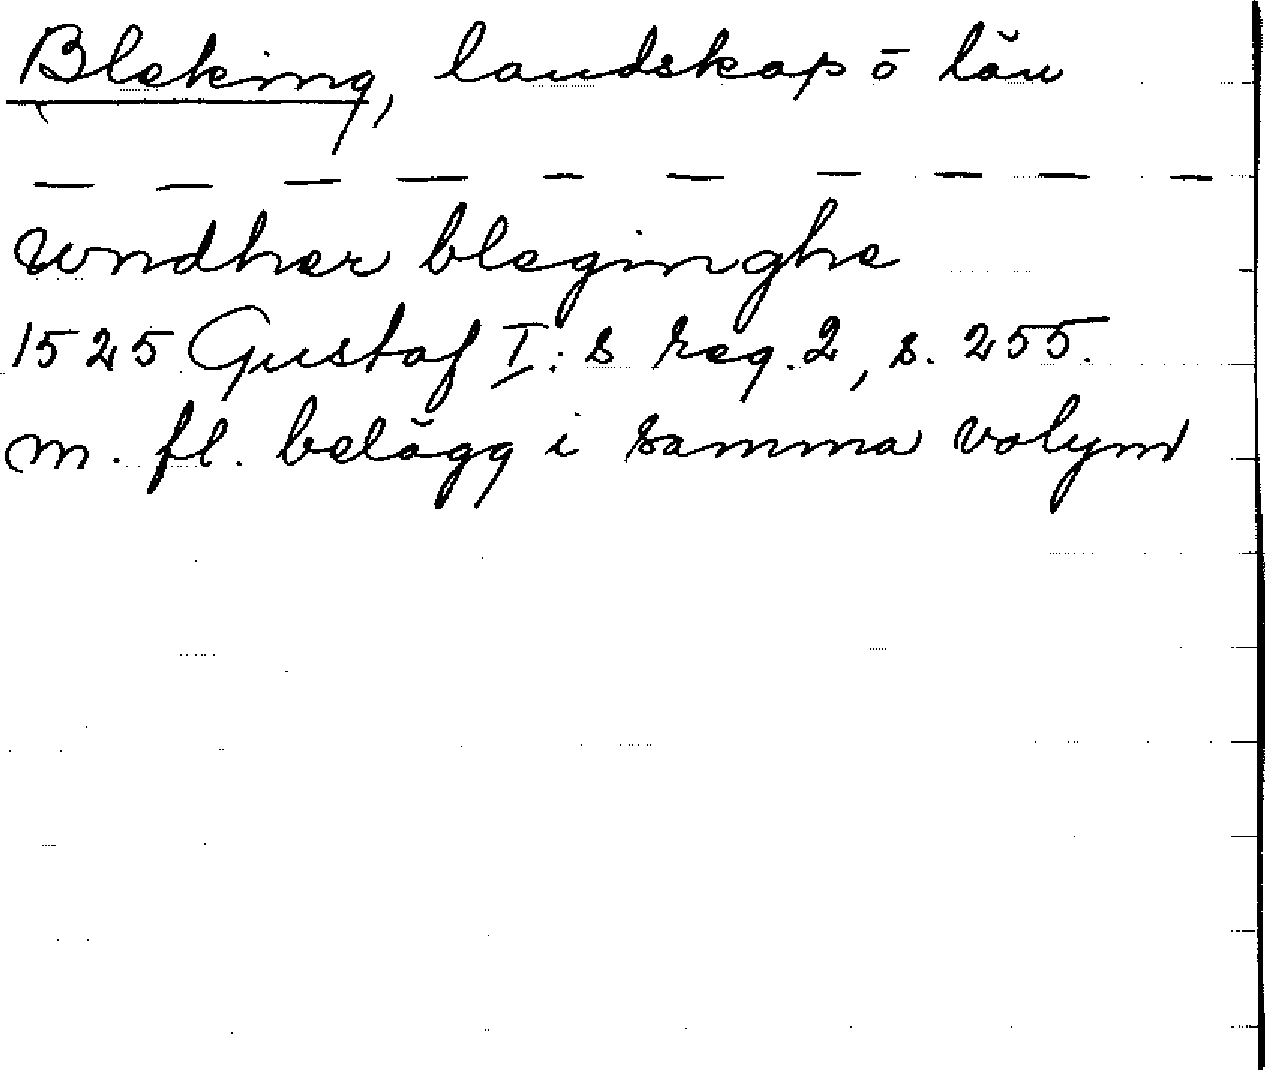 Bleking, landskap o län
wndher bleginghe
1525 Gustaf I:s reg. 2, s. 255.
m. fl. belägg i samma volym